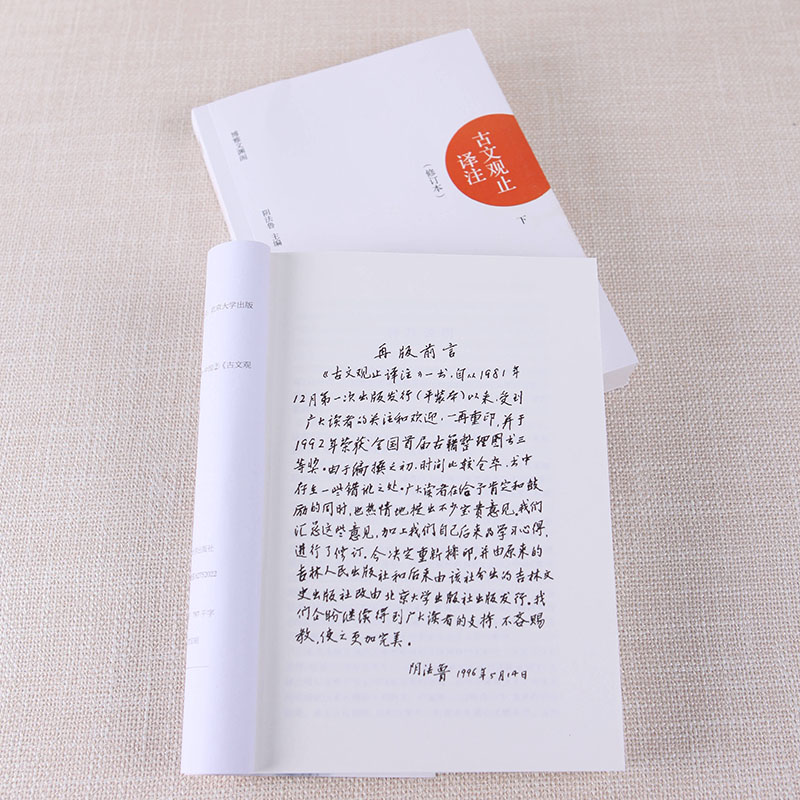 博雅文渊阁
古文观止
译注
(修订本)
下
阴法鲁 主编
京大学出版
《古文观
出版社
再版前言
《古文观止译注》一书,自从1981年
12月第一次出版发行(平装本)以来,受到
广大读者的关注和欢迎,一再重印,并于
1992年荣获全国首届古籍整理图书三
等奖。由于编撰之初,时间比较仓卒,书中
存在一些错讹之处。广大读者在给予肯定和鼓
励的同时,也热情地提出不少宝贵意见。我们
汇总这些意见,加上我们自己后来的学习心得,
进行了修订,今决定重新排印,并由原来的
吉林人民出版社和后来由该社分出的吉林文
史出版社改由北京大学出版社出版发行。我
们企盼继续得到广大读者的支持,不吝赐
教,使之更加完美。
阴法鲁 1996年5月14日